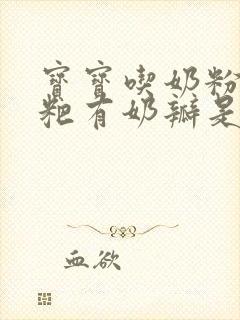 寳寳喫奶粉
粑有奶瓣是
血欲